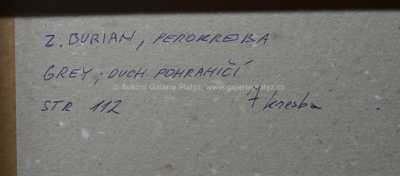 Z. BURIAN, PEROKRESBA
GREY; DUCH POHRANIČÍ
© Aukční Galerie Platýz, www.galerieplatyz.cz
STR 112 7 kresba